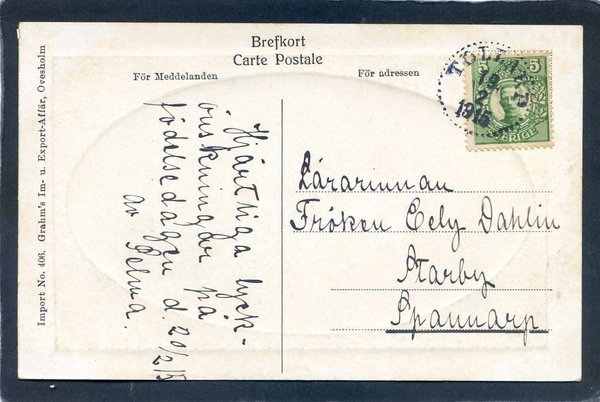 Brefkort
Carte Postale
För Meddelanden
För adressen
Import No. 406. Grahm's Im- u. Export-Affär, Ovesholm
Hjärtliga lyck-
önskningar på
födelsedagen d. 20/2/15
av Selma.
5
SVERIGE
TOLLARP
19
2
1915
Lärarinnan
Fröken Eely Dahlin
Starby
Spannarp